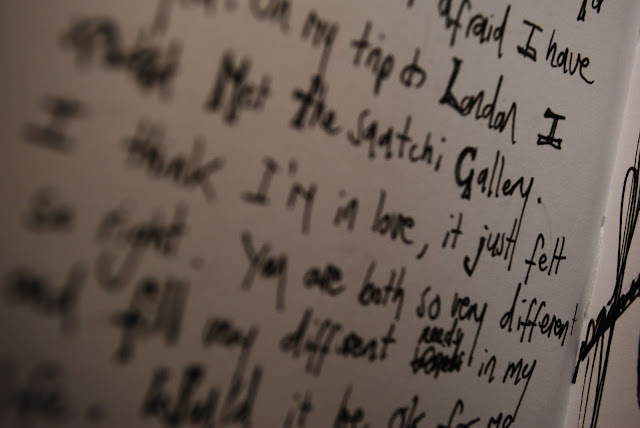 afraid I have
you. On my trip to London I
Met The Saatchi Gallery.
I think I'm in love, it just felt
so right. You are both so very different
and fill my different needs in my
life. Would it be ok for me